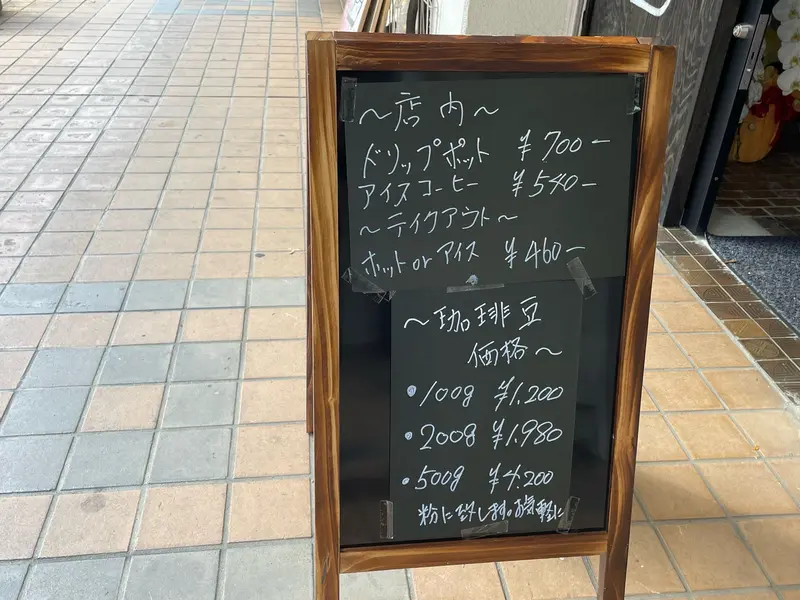 〜店内〜
ドリップポット ¥700-
アイスコーヒー ¥540-
〜テイクアウト〜
ホットorアイス ¥460-
〜珈琲豆
価格〜
・100g ¥1.200
・200g ¥1.980
・500g ¥4.200
粉に致します。お気軽に